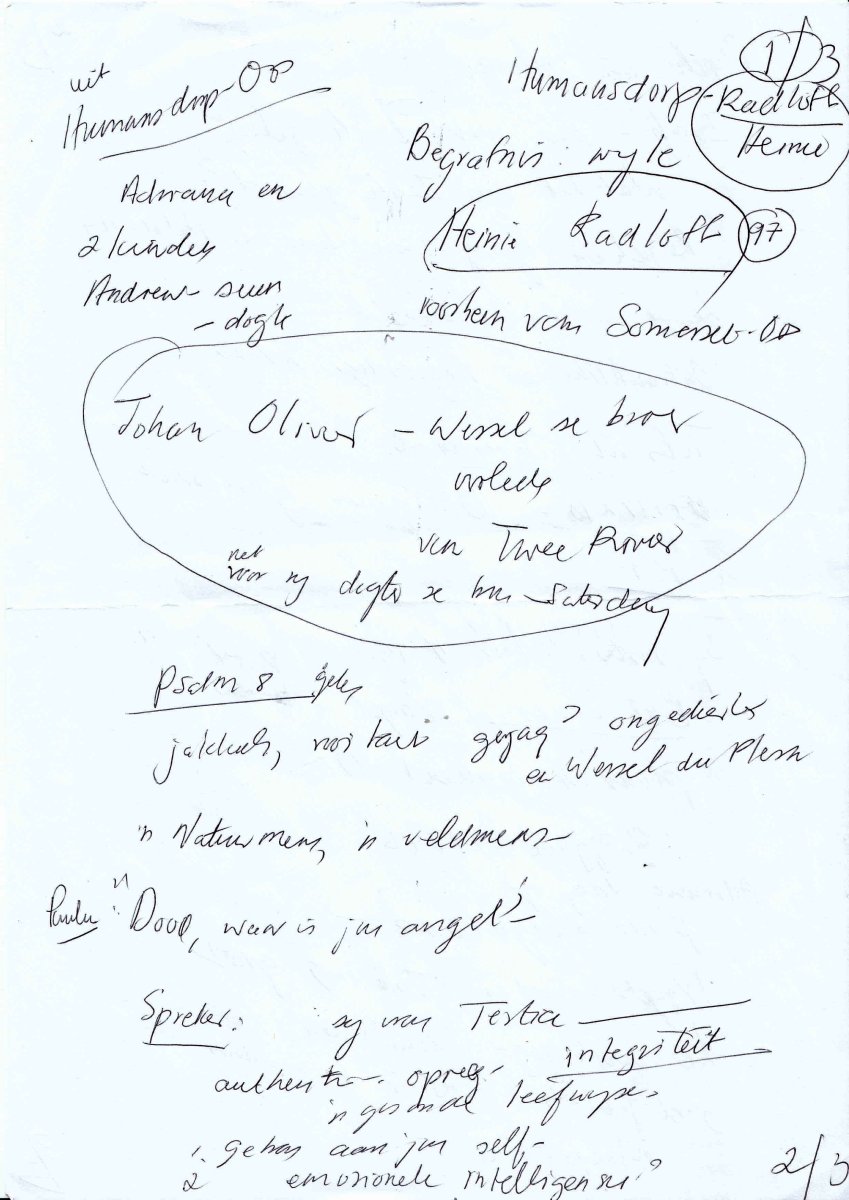 1/3
uit
Humansdorp-Op
Humansdorp - Radloff
Heinie
Begrafnis: wyle
Heinie Radloff 97
voorheen van Somerset-Op
Adriana en
2 kinders
Andrew - seun
- dogte
Johan Olivier - Wessel se broer
oorlede
van Twee Rivier
net
voor sy dogter se troue Saterdag
Psalm 8 gelees
jakkals, rooikat gejag? ongediertes
en Wessel du Plessis
'n Natuurmens, 'n veldmens
Paulus: "Dood, waar is jou angel"
Spreker: sy vrou Tertia
integriteit
opreg
'n gesonde leefwyse
1. Gehoorsaam aan jou self
2 emosionele intelligensie?
2/3